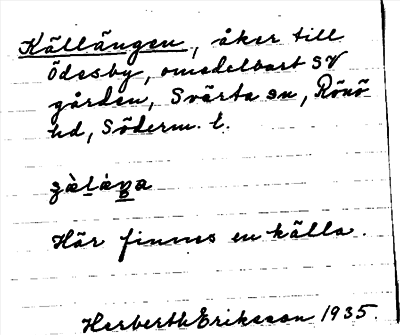 Källängen, åker till
Ödesby, omedelbart SV
gården, Svärta sn, Rönö
hd, Söderm. l.
Här finnes en källa.
Herberth Eriksson 1935.